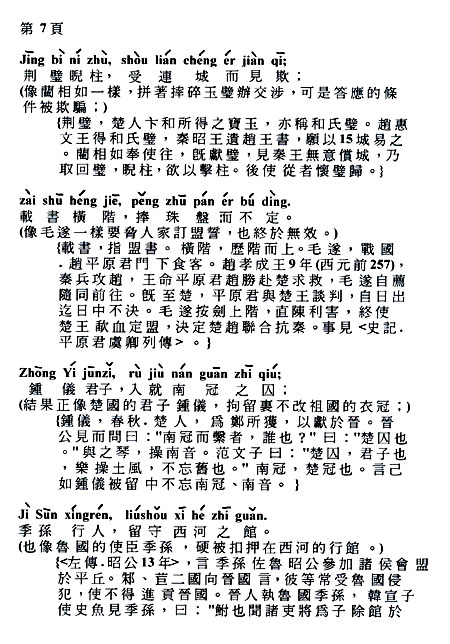 第 7 頁
Jīng bì ní zhù, shòu lián chéng ér jiàn qī;
荆 璧 睨 柱， 受 連 城 而 見 欺；
(像藺相如一樣，拼著摔碎玉璧辦交涉，可是答應的條
件被欺騙；)
{荆璧，楚人卞和所得之寶玉，亦稱和氏璧。趙惠
文王得和氏璧，秦昭王遺趙王書，願以15城易之
。藺相如奉使往，旣獻璧，見秦王無意償城，乃
取回璧，睨柱，欲以擊柱。後使從者懷璧歸。}
zài shū héng jiē, pěng zhū pán ér bú dìng.
載 書 橫 階，捧 珠 盤 而 不 定 。
(像毛遂一樣要脅人家訂盟誓，也終於無效。)
{載書，指盟書。橫階，歷階而上。毛遂，戰國
．趙平原君門下食客。趙孝成王9年(西元前257)，
秦兵攻趙，王命平原君趙勝赴楚求救，毛遂自薦
隨同前往。旣至楚，平原君與楚王談判，自日出
迄日中不決。毛遂按劍上階，直陳利害，終使
楚王歃血定盟，決定楚趙聯合抗秦。事見<史記．
平原君虞卿列傳>。}
Zhōng Yí jūnzǐ, rù jiù nán guān zhī qiú;
鍾 儀 君子，入就 南 冠 之 囚；
(結果正像楚國的君子鍾儀，拘留裏不改祖國的衣冠；)
{鍾儀，春秋．楚人，爲鄭所獲，以獻於晉。晉
公見而問曰："南冠而縶者，誰也？" 曰："楚囚也
。"與之琴，操南音。范文子曰："楚囚，君子也
，樂操土風，不忘舊也。"南冠，楚冠也。言己
如鍾儀被留中不忘南冠、南音。}
Jì Sūn xíngrén, liúshǒu xī hé zhī guǎn.
季孫 行人，留守 西河 之 館。
(也像魯國的使臣季孫，硬被扣押在西河的行館。)
{<左傳．昭公13年>，言季孫佐魯昭公參加諸侯會盟
於平丘。邾、莒二國向晉國言，彼等常受魯國侵
犯，使不得進貢晉國。晉人執魯國季孫，韓宣子
使史魚見季孫，曰："鮒也聞諸吏將爲子除館於